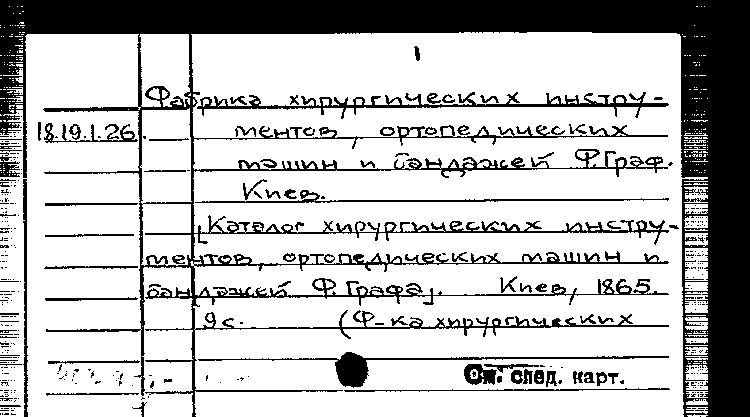 1
Фабрика хирургических инстру-
18.19.1.26. ментов, ортопедических
машин и бандажей Ф.Граф.
Киев.
[Каталог хирургических инстру-
ментов, ортопедических машин и
бандажей Ф.Графа]. Киев, 1865.
9с. (Ф-ка хирургических
См. след. карт.